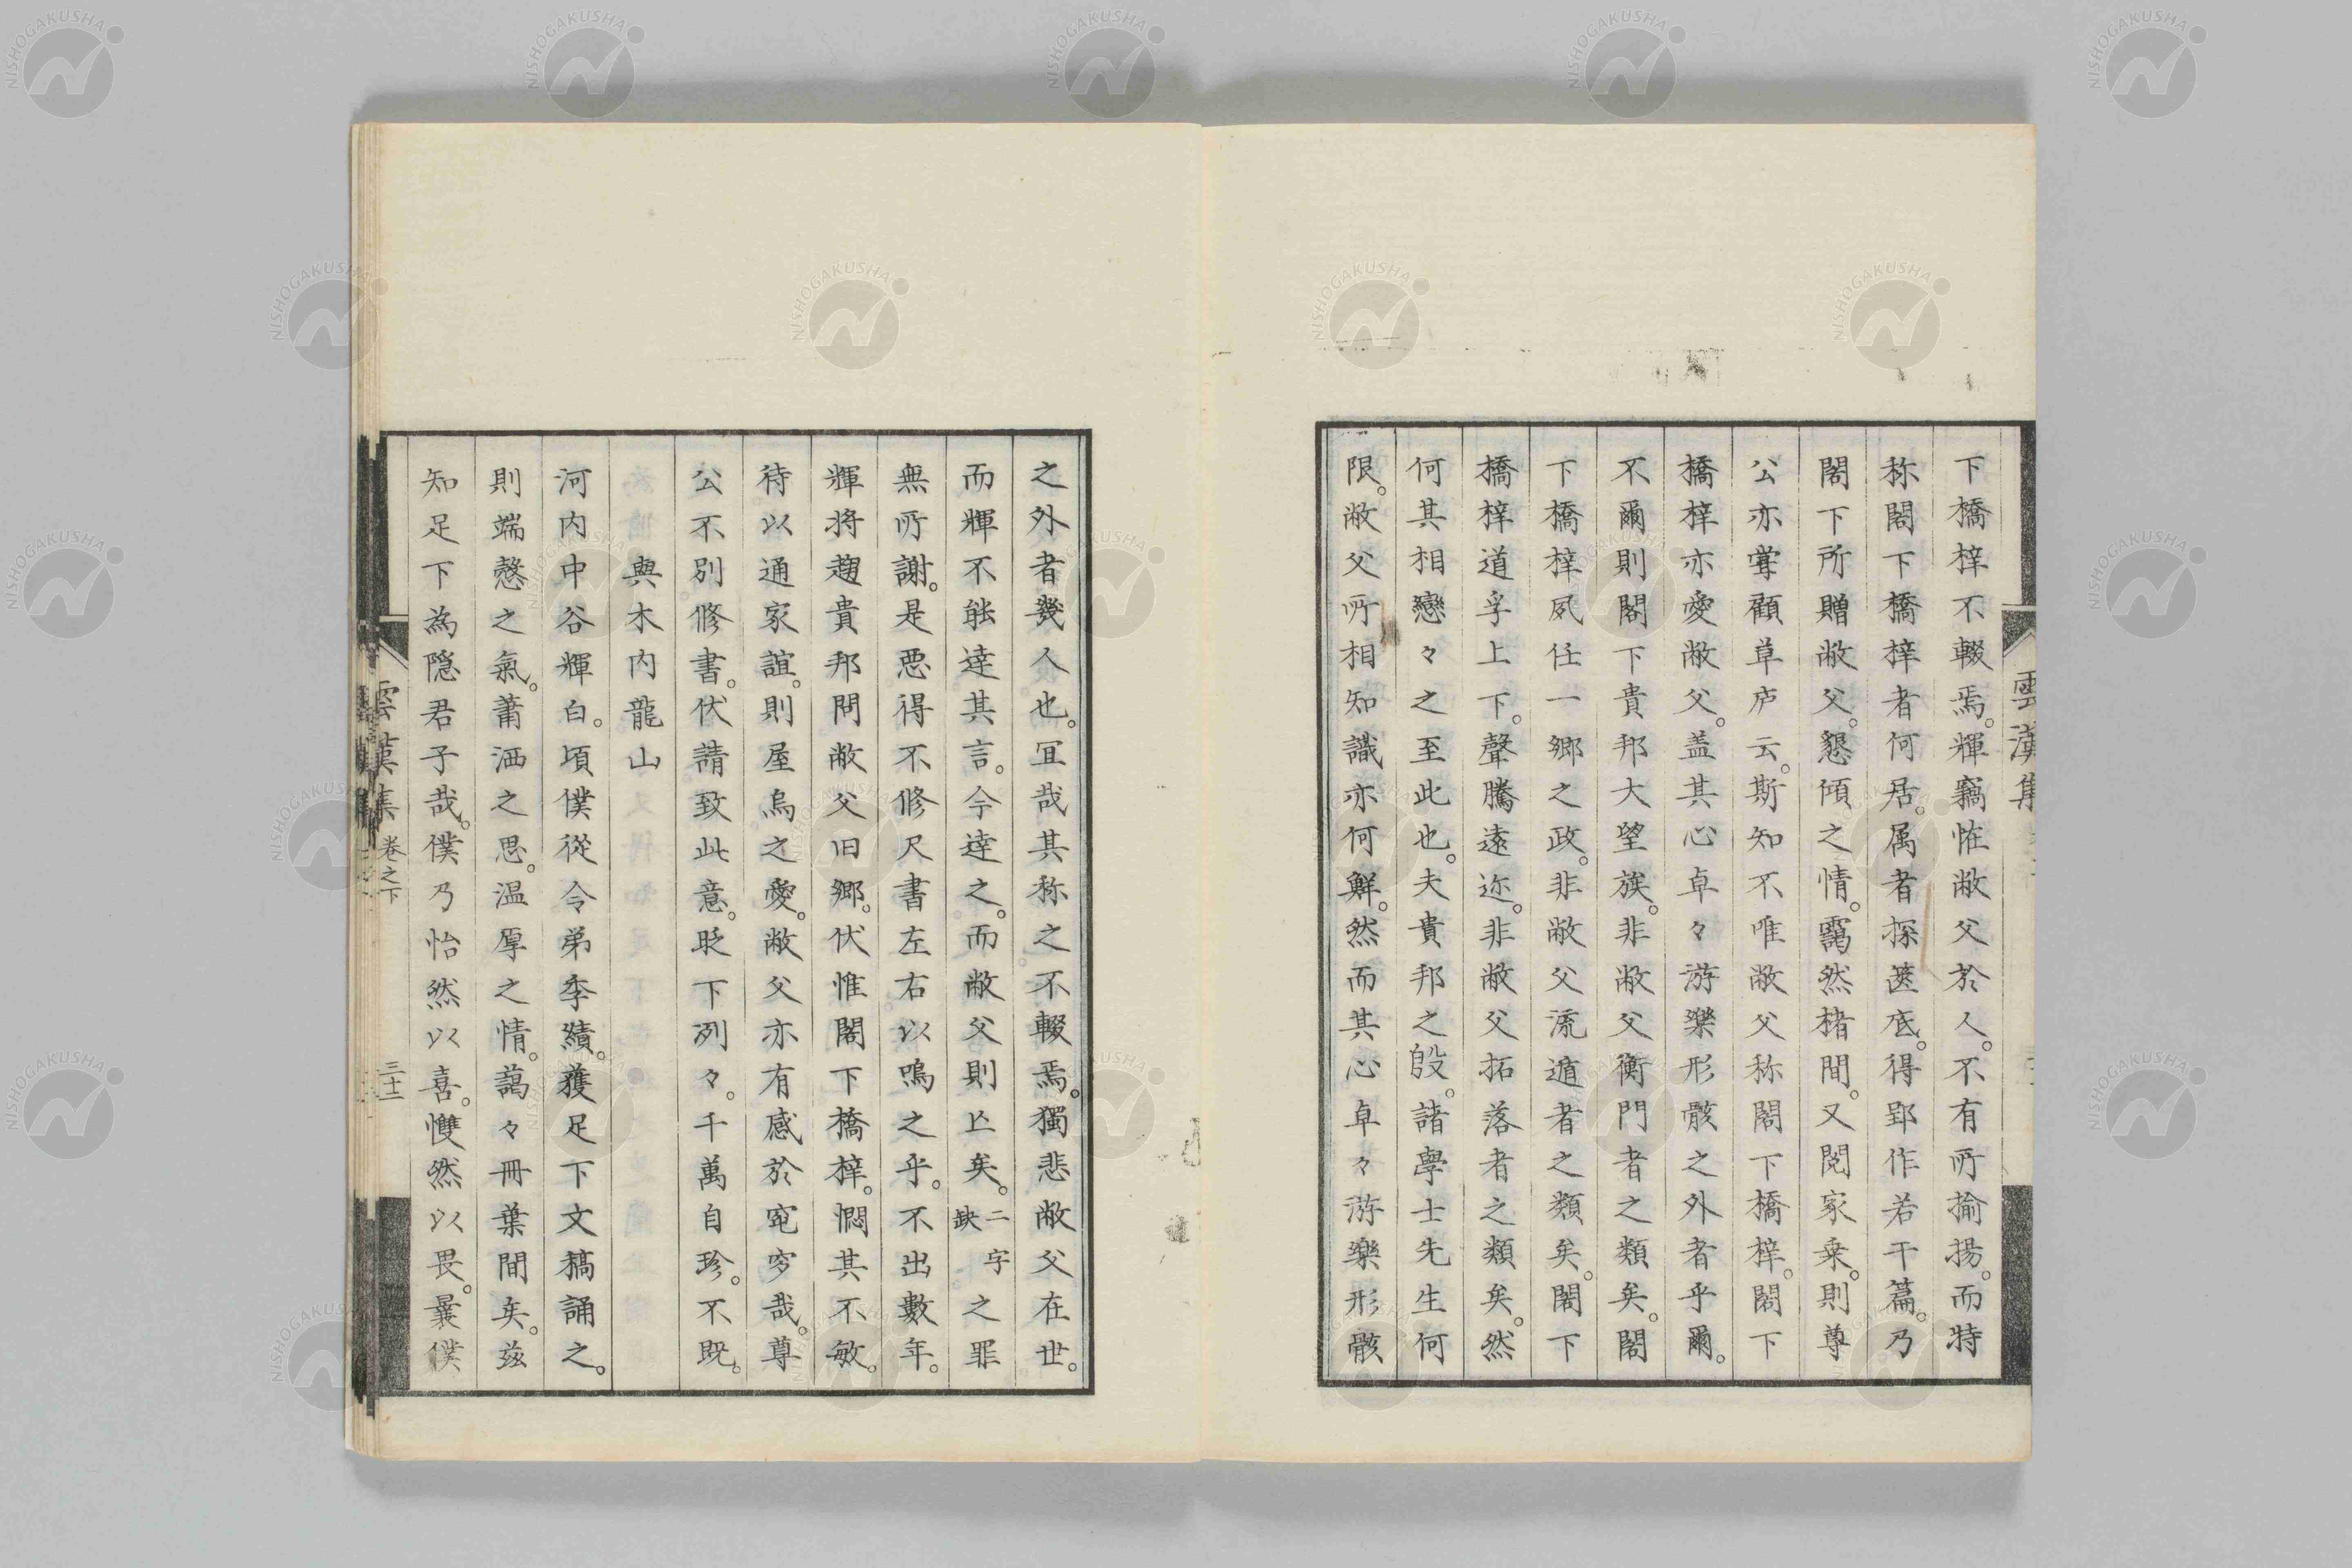 下橋梓不輟焉。輝竊恠敝父於人。不有所揄揚。而特
称閣下橋梓者何居。属者探篋底。得郢作若干篇。乃
閣下所贈敝父。懇傾之情。靄然楮間。又閲家乗。則尊
公亦嘗顧草庐云。斯知不唯敝父称閣下橋梓。閣下
橋梓亦愛敝父。盖其心卓々游樂形骸之外者乎爾。
不爾則閣下貴邦大望族。非敝父衡門者之類矣。閣
下橋梓夙任一郷之政。非敝父流遁者之類矣。閣下
橋梓道孚上下。聲騰遠迩。非敝父拓落者之類矣。然
何其相戀々之至此也。夫貴邦之殷。諸學士先生何
限。敝父所相知識亦何鮮。然而其心卓々游樂形骸
之外者幾人也。冝哉其称之不輟焉。獨悲敝父在世。
而輝不能達其言。今達之。而敝父則亾矣。二字缺之罪
無所謝。是悪得不修尺書左右以鳴之乎。不出數年。
輝将趨貴邦問敝父旧郷。伏惟閣下橋梓。憫其不敏。
待以通家誼。則屋烏之愛。敝父亦有感於窀穸哉。尊
公不別修書。伏請致此意。眨下列々。千萬自珍。不既。
與木内龍山
河内中谷輝白。頃僕從令弟季績。獲足下文稿誦之。
則端愨之氣。蕭洒之思。温厚之情。藹々冊葉間矣。茲
知足下為隠君子哉。僕乃怡然以喜。戄然以畏。曩僕
雲漢集
雲漢集 卷之下 三十二
NISHOGAKUSHA